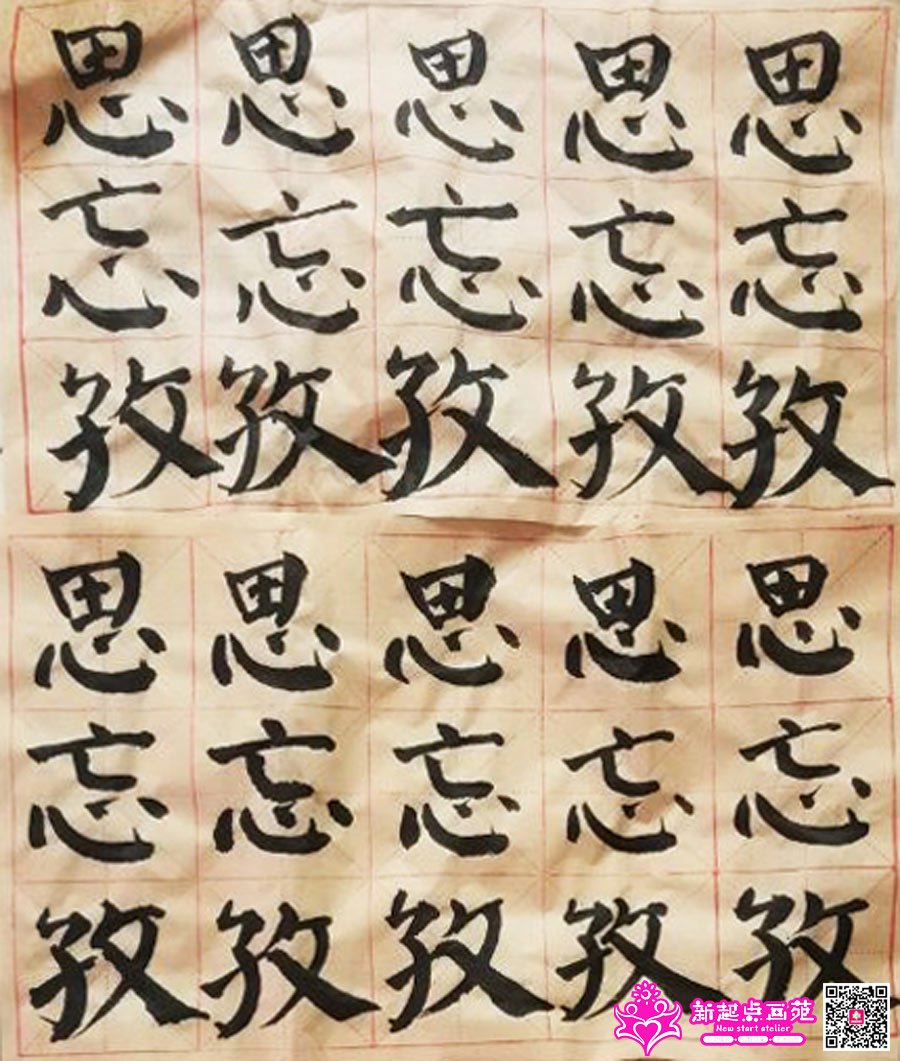 思思思思思
忘忘忘忘忘
孜孜孜孜孜
思思思思思
忘忘忘忘忘
孜孜孜孜孜
新起点画苑
New start atelier